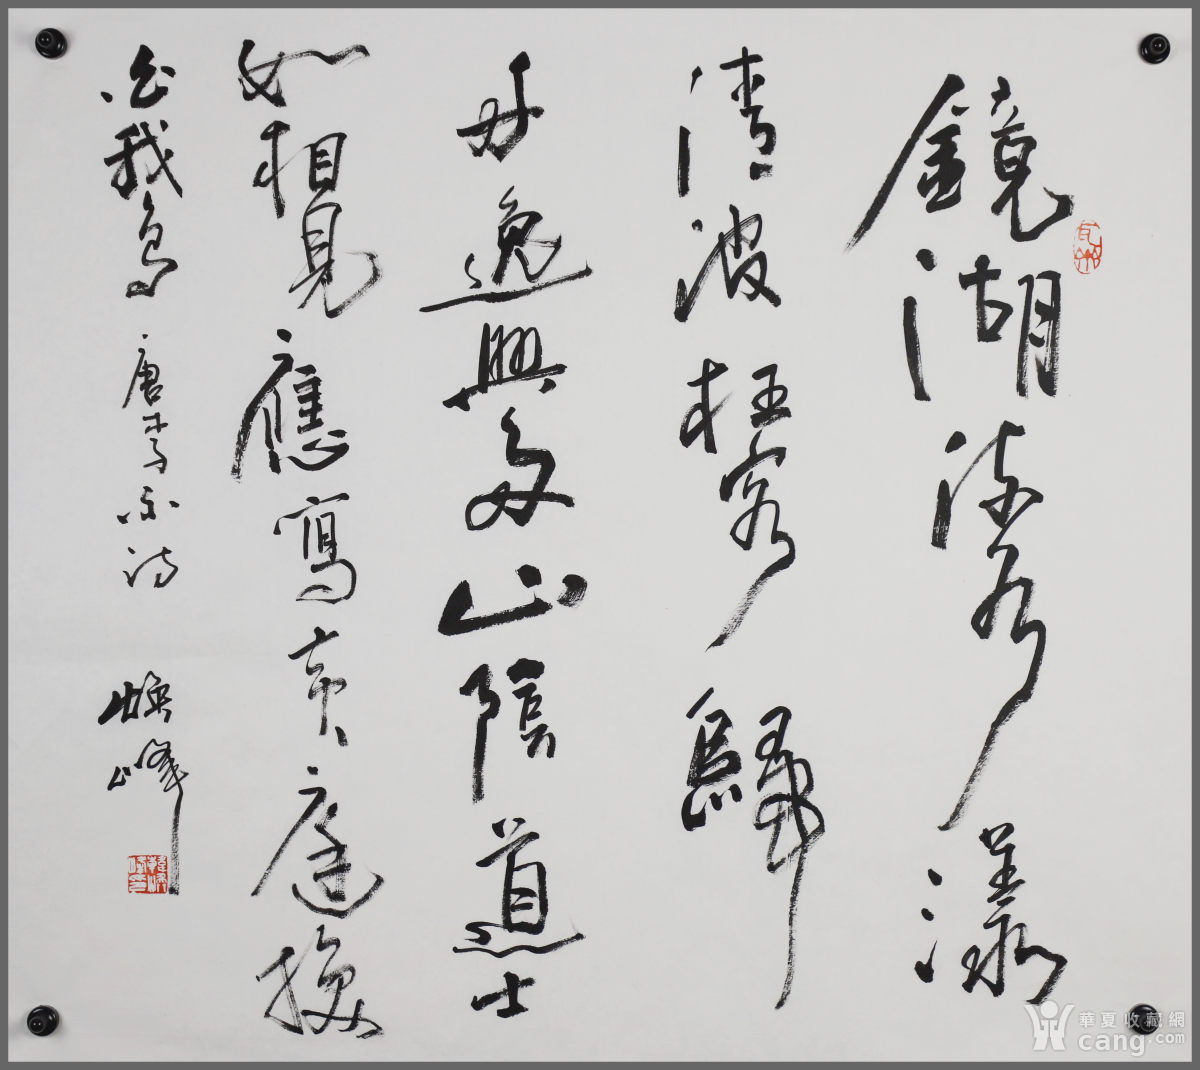 鏡湖流水漾
清波狂客歸
舟逸興多山陰道士
如相見應寫黃庭換
白鵞 唐李白詩 煥峰
華夏收藏網
cang.com